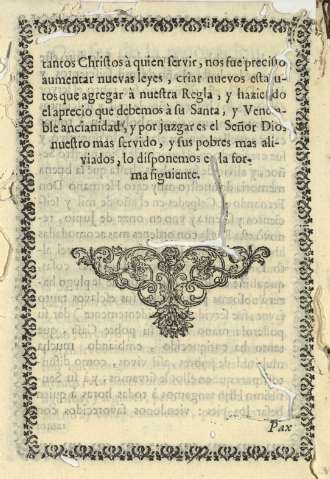 tantos Christos à quien servir, nos fue preciso
aumentar nuevas leyes, criar nuevos estatu-
tos que agregar à nuestra Regla, y haziendo
el aprecio que debemos à su Santa, y Venera-
ble ancianidad, y por juzgar es el Señor Dios
nuestro mas servido, y sus pobres mas ali-
viados, lo disponemos en la for-
ma siguiente.
Pax